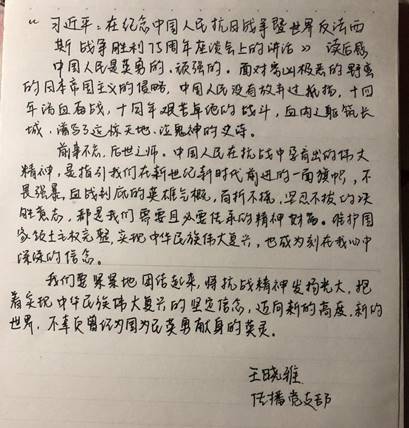 “习近平：在纪念中国人民抗日战争暨世界反法西
斯战争胜利75周年座谈会上的讲话》读后感
中国人民是英勇的、顽强的。面对穷凶极恶的野蛮
的日本帝国主义的侵略，中国人民没有放弃过抵抗，十四
年浴血奋战，十四年艰苦卓绝的战斗，血肉之躯筑长
城，谱写了这惊天地、泣鬼神的史诗。
前事不忘，后世之师。中国人民在抗战中孕育出的伟大
精神，是指引我们在新世纪新时代前进的一面旗帜，不
畏强暴、血战到底的英雄气概，百折不挠、坚忍不拔的决
胜意志，都是我们需要且必要传承的精神财富。维护国
家领土主权完整，实现中华民族伟大复兴，也成为刻在我心中
深深的信念。
我们要紧紧地团结起来，将抗战精神发扬光大，抱
着实现中华民族伟大复兴的坚定信念，迈向新的高度、新的
世界，不辜负曾经为国为民英勇献身的英灵。
王晓雅
传播党支部